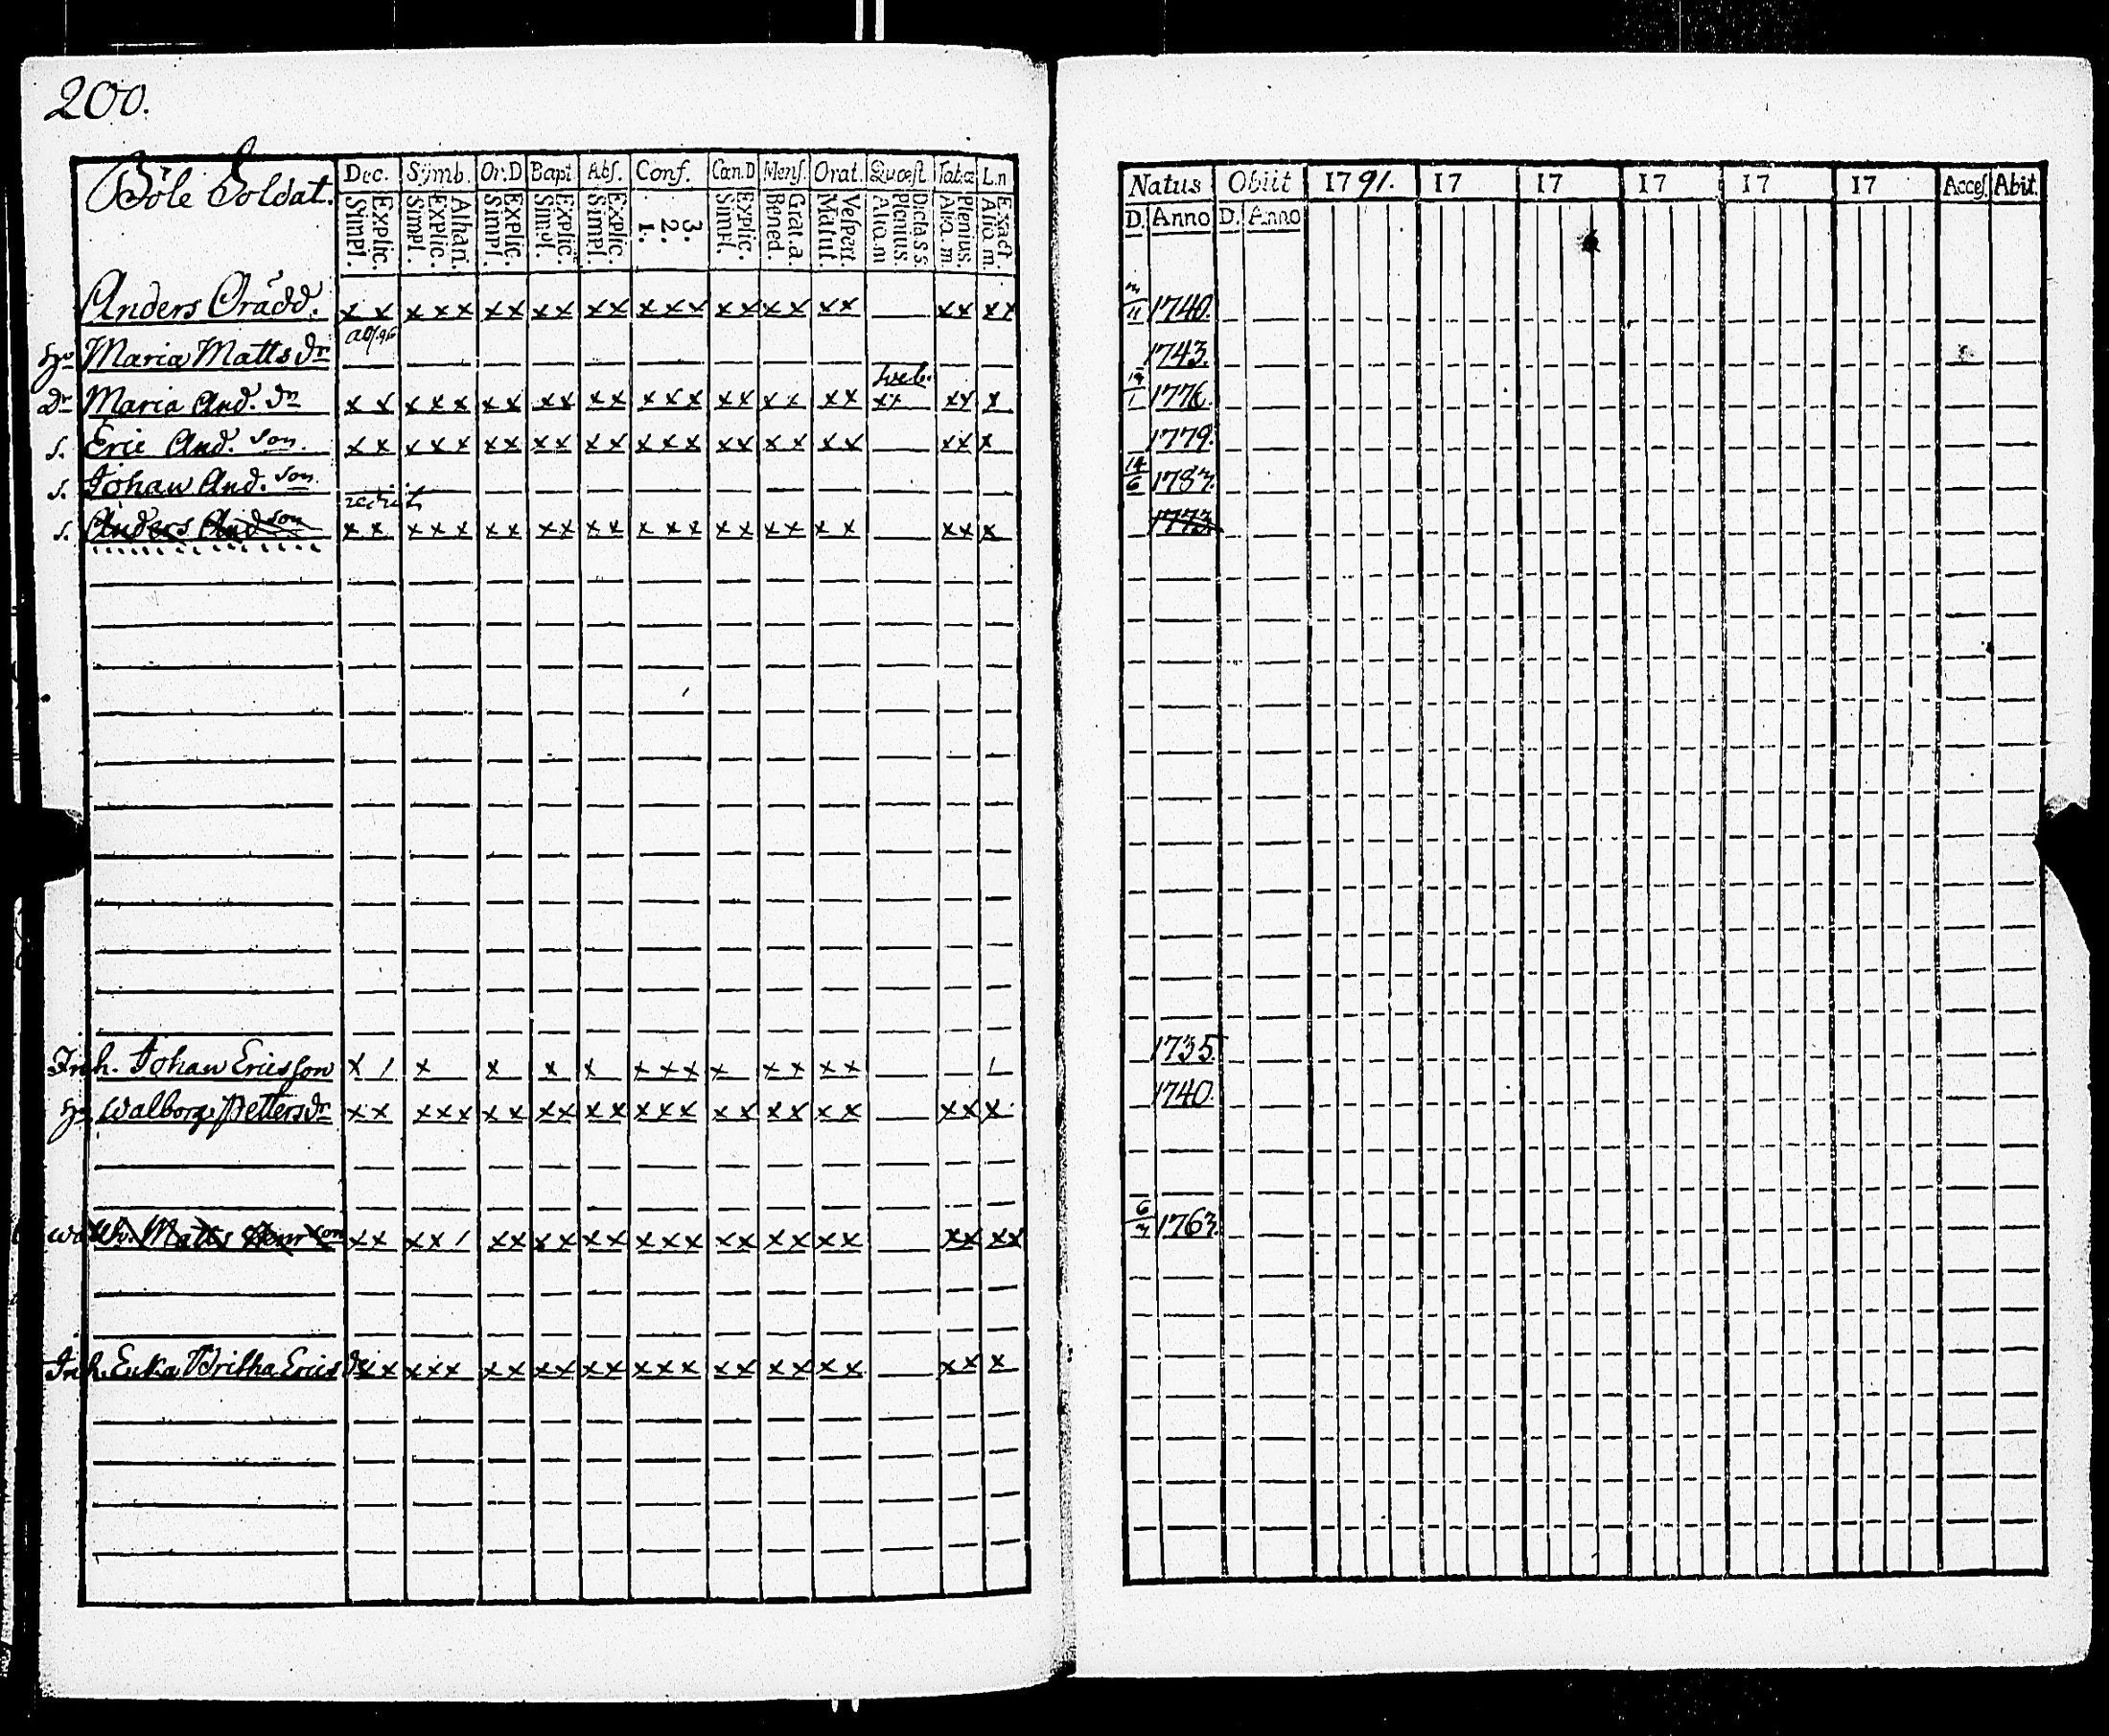 200.
Böle Soldat.
Dec. Symb. Or.D Bapt. Abs. Conf. Can.D Mens. Orat. Quæst Tabæ L.n
Explic. Simpl. Athan. Explic. Simpl. Explic. Simpl. Explic. Simpl. Explic. Simpl. 3. 2. 1. Explic. Simpl. Grat.a. Bened. Vespert. Matut. Dicta.s.s. Plenius. Aliq.m Plenius. Aliq.m. Exact. Aliq.m.
Natus Obiit 1791. 17 17 17 17 17 Acces. Abit.
D. Anno D. Anno
Anders Orädd. x x x x x x x x x x x x x x x x x x x x x x x x 3/11 1740.
Hu Maria Matts dr 1743.
Dr Maria And. dr x x x x x x x x x x x x x x x x x x x x x x x x x 1776.
s. Eric And. son. x x x x x x x x x x x x x x x x x x x x x x x 1779.
s. Johan And. son. 14/6 1783.
s. Anders And son x x x x x x x x x x x x x x x x x x x x x x x 1773.
Inh. Johan Ericsson x / x x x x x x x x x x x x / 1735
Hu Walborg Petters dr x x x x x x x x x x x x x x x x x x x x x x x 1740.
Matts x x x x / x x x x x x x x x x x x x x x x x x x 6/3 1763.
Inh. Britha Erics dr x x x x x x x x x x x x x x x x x x x x x x